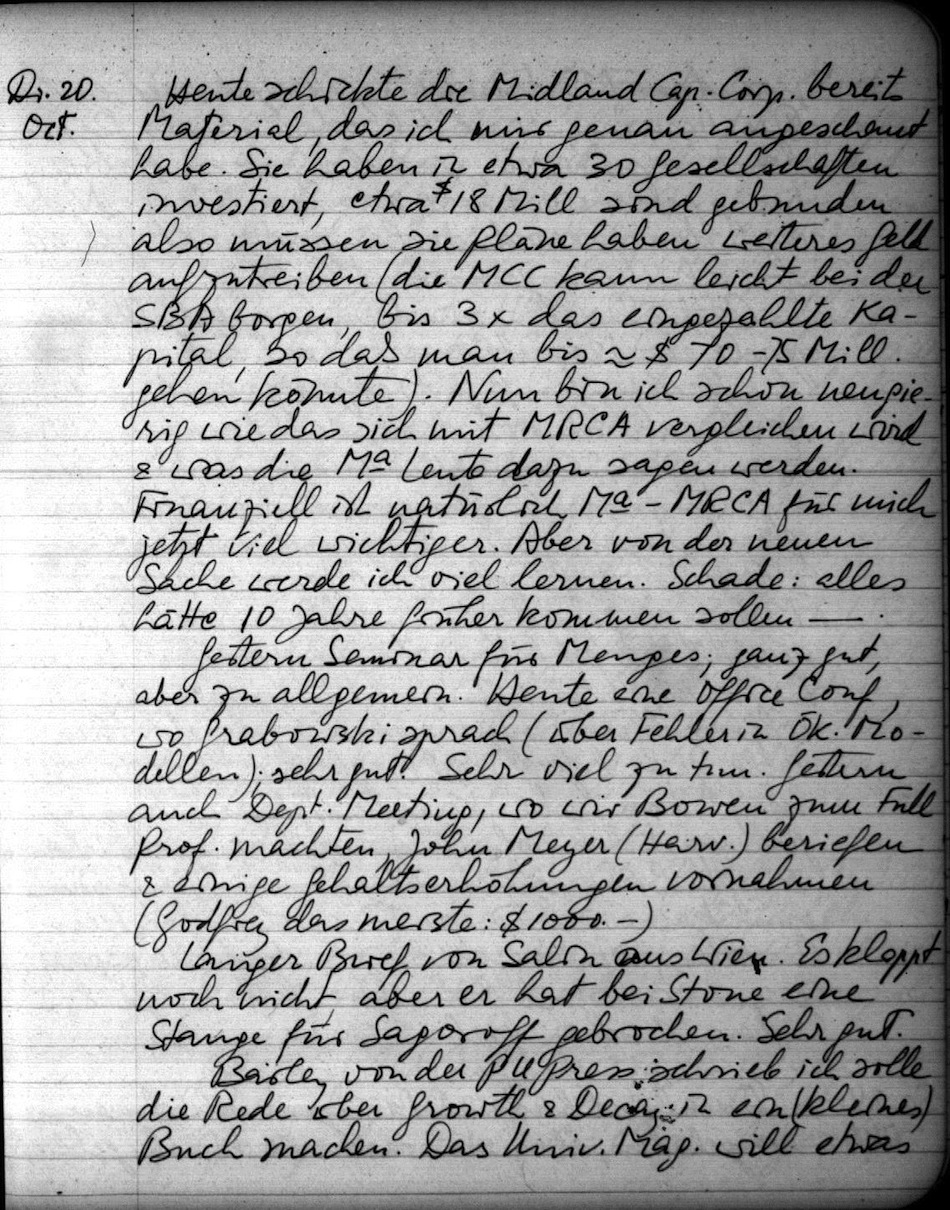 Di. 20. Oct.
Heute schickte die Midland Cap. Corp. bereits
Material, das ich mir genau angeschaut
habe. Sie haben in etwa 30 Gesellschaften
investiert, etwa $ 18 Mill sind gebunden
also müssen sie Pläne haben weiteres Geld
aufzutreiben (die MCC kann leicht bei der
SBA borgen, bis 3x das eingezahlte Ka-
pital, so daß man bis ≈ $ 70 - 75 Mill.
gehen könnte). Nun bin ich schon neugie-
rig wie das sich mit MRCA vergleichen wird
& was die Ma Leute dazu sagen werden.
Finanziell ist natürlich Ma - MRCA für mich
jetzt viel wichtiger. Aber von der neuen
Sache werde ich viel lernen. Schade: alles
hätte 10 Jahre früher kommen sollen — .
Gestern Seminar für Menges; ganz gut,
aber zu allgemein. Heute eine Office Conf,
wo Grabowski sprach (über Fehler in Ök. Mo-
dellen); sehr gut. Sehr viel zu tun. Gestern
auch Dept. Meeting, wo wir Bowen zum Full
Prof. machten, John Meyer (Harv.) beriefen
& einige Gehaltserhöhungen vornahmen
(Godfrey das meiste: $ 1000.-)
Langer Brief von Salin aus Wien. Es klappt
noch nicht, aber er hat bei Stone eine
Stange für Sagoroff gebrochen. Sehr gut.
Bailey von der PU Press schrieb ich solle
die Rede über Growth & Decay in ein (kleines)
Buch machen. Das Univ. Mag. will etwas